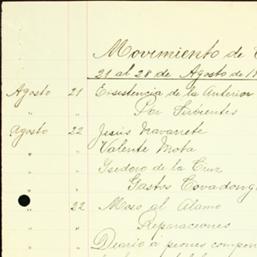 Movimiento de
21 al 28 de Agosto de 18
Agosto 21 Existencia de la Anterior
" " Por Sirvientes
Agosto 22 Jesus Navarrete
" Valente Mota
" Ysidoro de la Cruz
" Gastos Covadonga
" 22 Mozo al Alamo
" Reparaciones
" Diario a peones compon